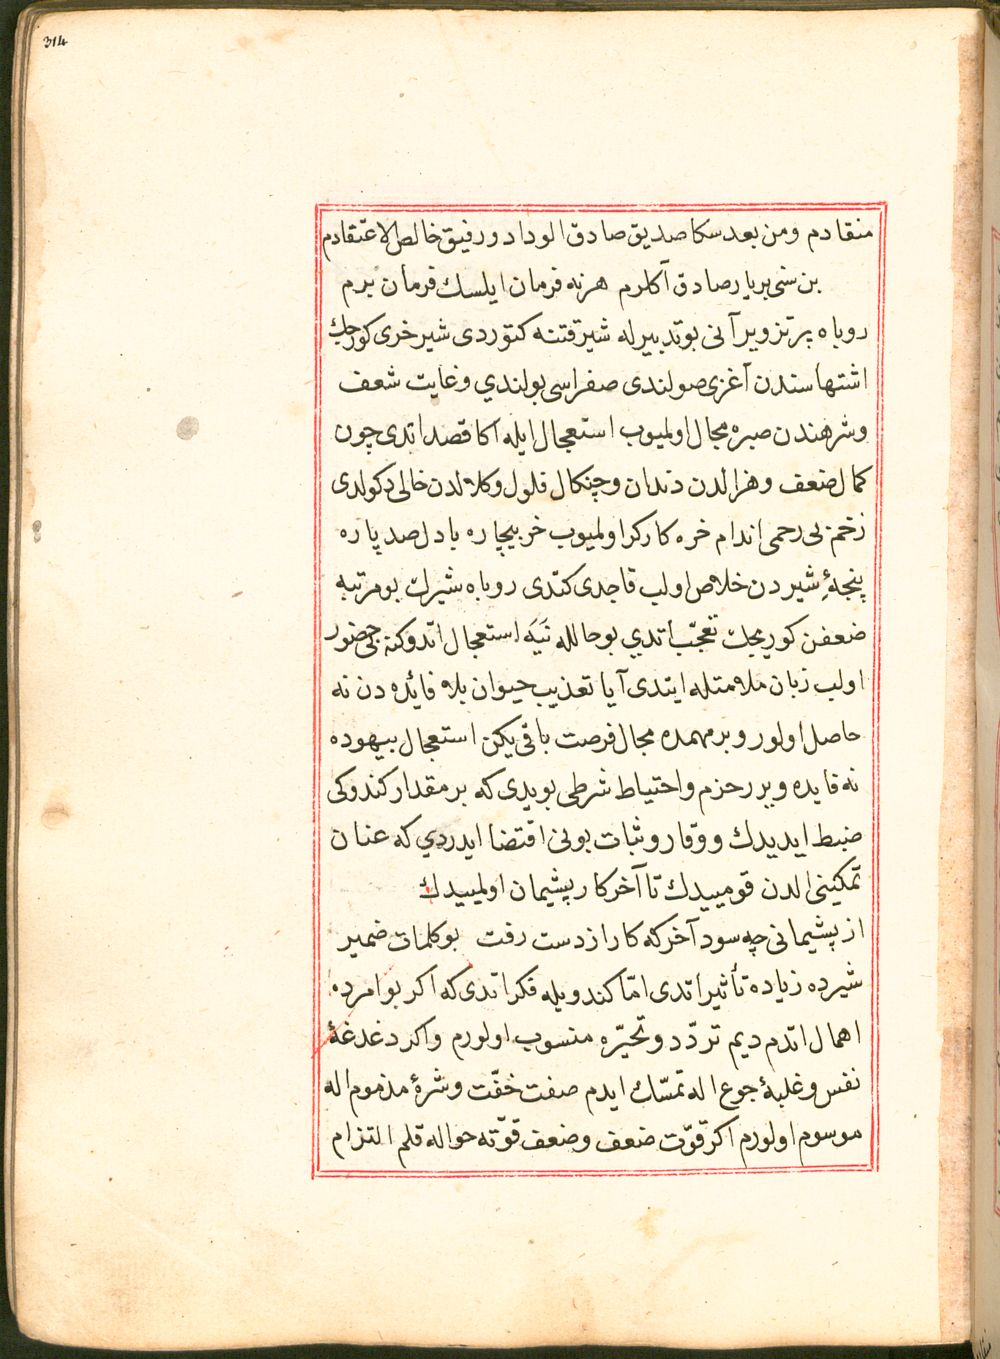 314
منقادم ومن بعد سكا صديق صادق الوداد ورفيق خالص الاعتقادم
بن سنى بر يار صادق آكلرم هر نه فرمان ايلسك فرمان برم
روباه پر تزوير آنى بو تدبيرله شير قتنه كتوردى شير خرى كورجك
اشتهاسندن آغزى صولندى صفراسى بولندي وغايت شعف
وشرهندن صبره مجال اولميوب استعجال ايله اكا قصد اتدى چون
كمال ضعف وهزالدن دندان وچنكال فلول وكلالدن خالى دكولدى
زخم بى رحمى اندام خره كاركر اولميوب خر بيچاره با دل صد پاره
پنجۀ شيردن خلاص اولب قاجدى كتدى روباه شيرك بو مرتبه
ضعفن كوريجك تعجّب اتدي بو حالله نَيَه استعجال اتدوكنه بى حضور
اولب زبان ملامتله ايتدى آيا تعذيب حيوان بلا فائده دن نه
حاصل اولور وبر مهمده مجال فرصت باقى يكن استعجال بيهوده
نه فايده ويرر حزم واحتياط شرطى بويدى كه بر مقدار كندوكى
ضبط ايديدك ووقار وثبات بونى اقتضا ايدردي كه عنان
تمكينى الدن قومييدك تا آخر كار پشيمان اولمييدك
از پشيمانى چه سود آخر كه كار از دست رفت بو كلمات ضمير
شيرده زياده تأثير اتدى امّا كندويله فكر اتدى كه اكر بو امرده
اهمال اتدم ديم تردّد وتحيّره منسوب اولورم واكر دغدغۀ
نفس وغلبۀ جوع اله تمسّك ايدم صفت خفّت وشرۀ مذموم اله
موسوم اولورم اكر قوّت ضعف وضعف قوّته حواله قلم التزام